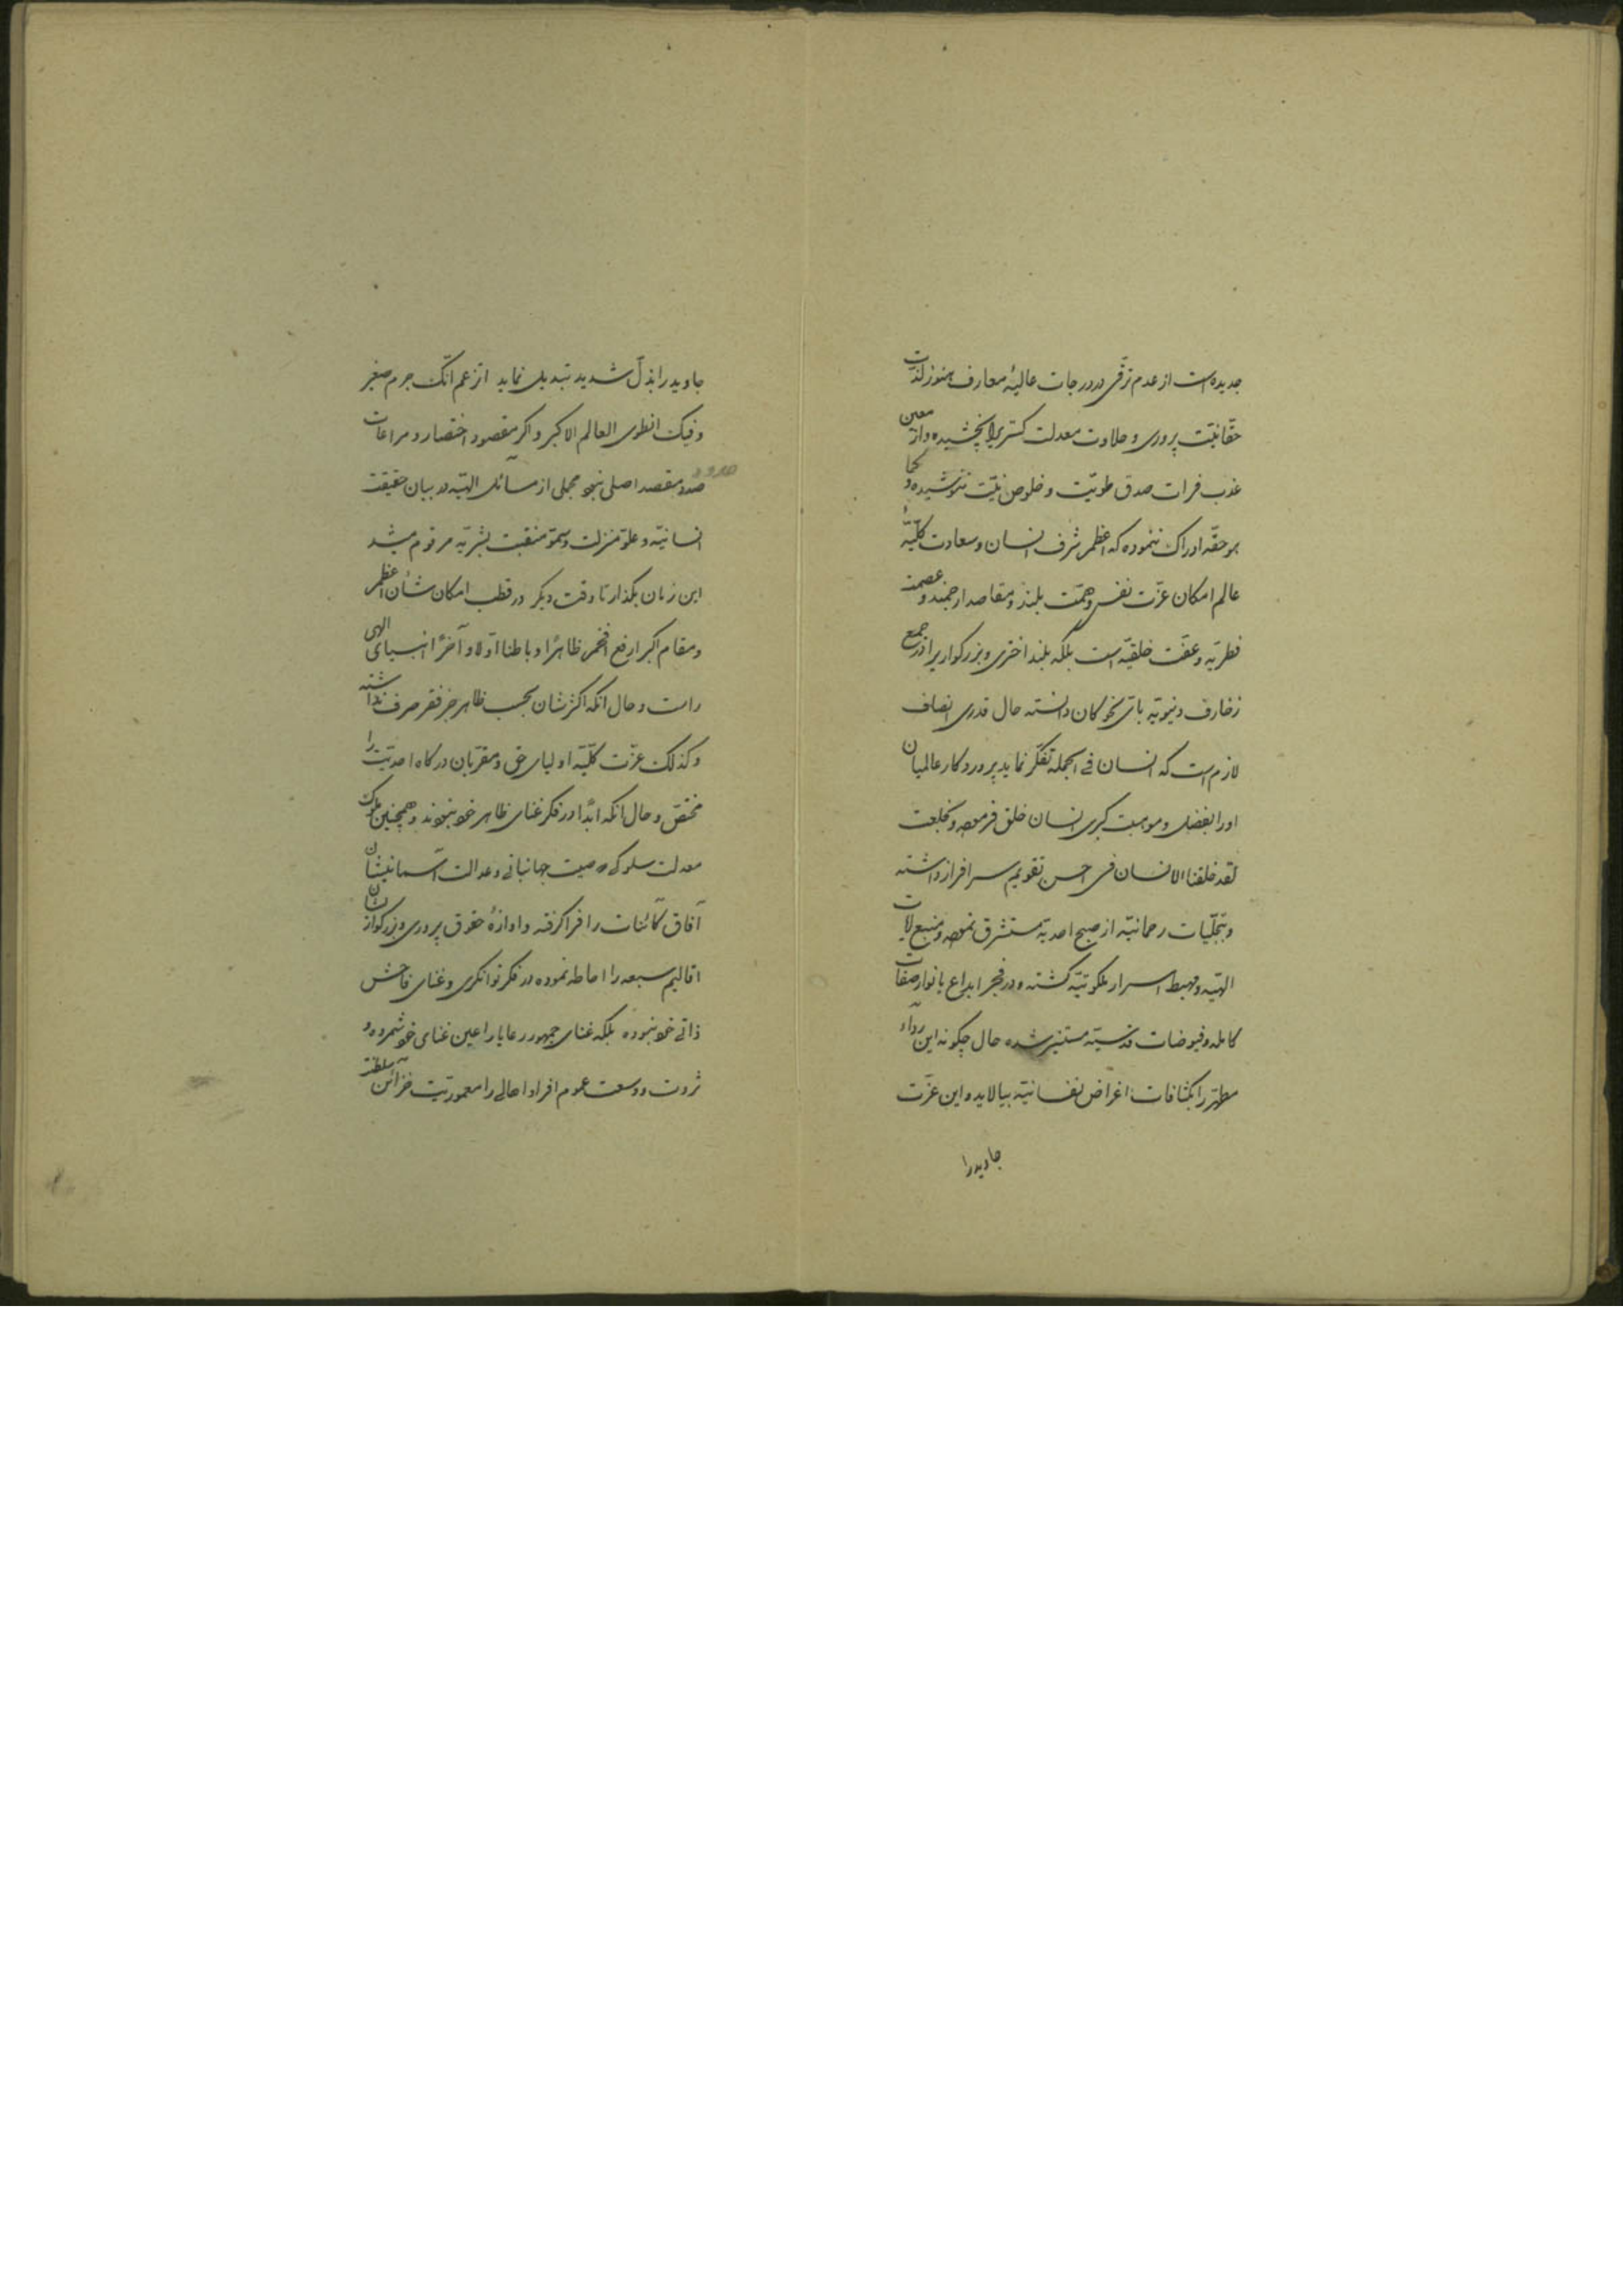 جدیده است از عدم ترقی در درجات عالیهٔ معارف هنوز لذت
حقانیت پروری و حلاوت معدلت گستریرا نچشیده و از معین
عذب فرات صدق طویت و خلوص نیت ننوشیده و کما
هو حقّه ادراک ننموده که اعظم شرف انسان و سعادت کلیّهٔ
عالم امکان عزّت نفس و همّت بلند و مقاصد ارجمند و عصمت
فطریّه و عفّت خلقیّه است بلکه بلند اختری و بزرگواریرا در جمع
زخارف دنیویّه بایّ نحو کان دانسته حال قدری انصاف
لازم است که انسان فی الجمله تفکّر نماید پروردگار عالمیان
او را بفضل و موهبت کبری انسان خلق فرموده و بخلعت
لقد خلقنا الانسان فی احسن تقویم سرافراز داشته
و بتجلّیات رحمانیّه از صبح احدیّه مستشرق نموده و منبع آیات
الهیّه و مهبط اسرار ملکوتیّه گشته و در فجر ابداع بانوار صفات
کامله و فیوضات قدسیّه مستنیر شده حال چگونه این رداء
مطهّر را بکثافات اغراض نفسانیّه بیالاید و این عزّت
جاوید را
جاوید را بذلّ شدید تبدیل نماید اتزعم انّک جرم صغیر
و فیک انطوی العالم الاکبر و اگر مقصود اختصار و مراعات
صدد مقصد اصلی نبود مجملی از مسائل الهیّه در بیان حقیقت
انسانیّه و علوّ منزلت و سموّ منقبت بشریّه مرقوم میشد
این زمان بگذار تا وقت دیگر در قطب امکان شأن اعظم
و مقام اکبر ارفع افخم ظاهرًا و باطنا اولا و آخرًا انبیای الهی
راست و حال آنکه اکثرشان بحسب ظاهر جز فقر صرف نداشته
و کذلک عزّت کلیّه اولیای حق و مقرّبان درگاه احدیّت را
مختصّ و حال آنکه ابدًا در فکر غنای ظاهر خود نبودند و همچنین ملوک
معدلت سلوکی که صیت جهانبانی و عدالت آسمانیشان
آفاق کائنات را فراگرفته و آوازهٔ حقوق پروری و بزرگواریشان
اقالیم سبعه را احاطه نموده در فکر توانگری و غنای فاحش
ذاتی خود نبوده بلکه غنای جمهور رعایا را عین غنای خود شمرده و
ثروت و وسعت عموم افراد اهالی را معموریّت خزائن سلطنت